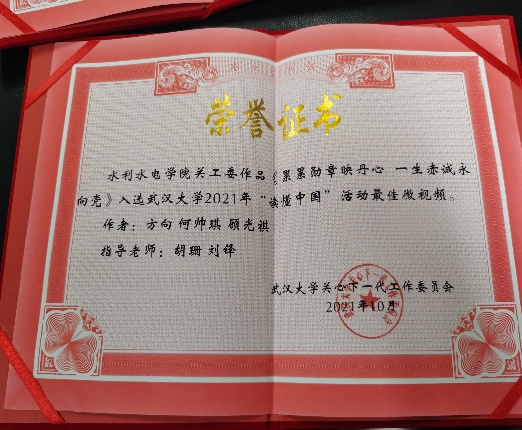 荣誉证书
水利水电学院关工委作品《累累勋章映丹心 一生赤诚永
向党》入选武汉大学2021年“读懂中国”活动最佳微视频。
作者：方向 何帅琪 顾光祺
指导老师：胡珊 刘铎
武汉大学关心下一代工作委员会
2021年10月